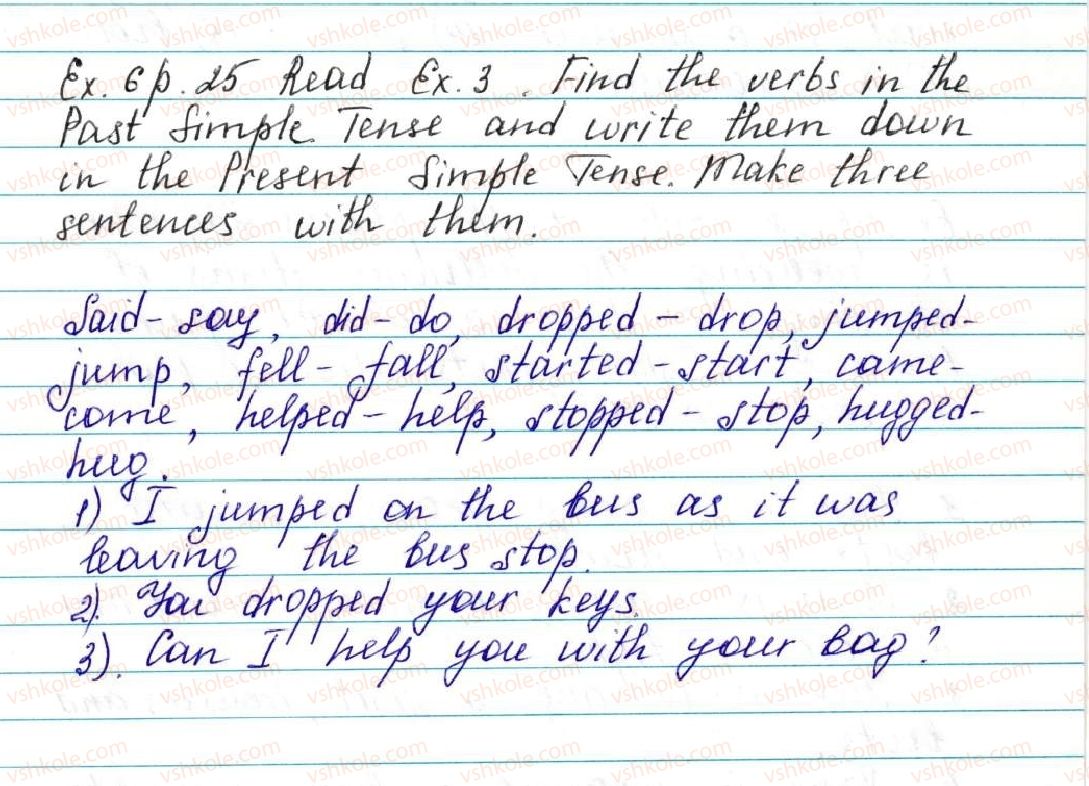 Ex. 6 p. 25 Read Ex. 3. Find the verbs in the
Past Simple Tense and write them down
in the Present Simple Tense. Make three
sentences with them.
Said - say, did - do, dropped - drop, jumped -
jump, fell - fall, started - start, came -
come, helped - help, stopped - stop, hugged -
hug.
1) I jumped on the bus as it was
leaving the bus stop.
2). You dropped your keys.
3). Can I help you with your bag?
vshkole.com